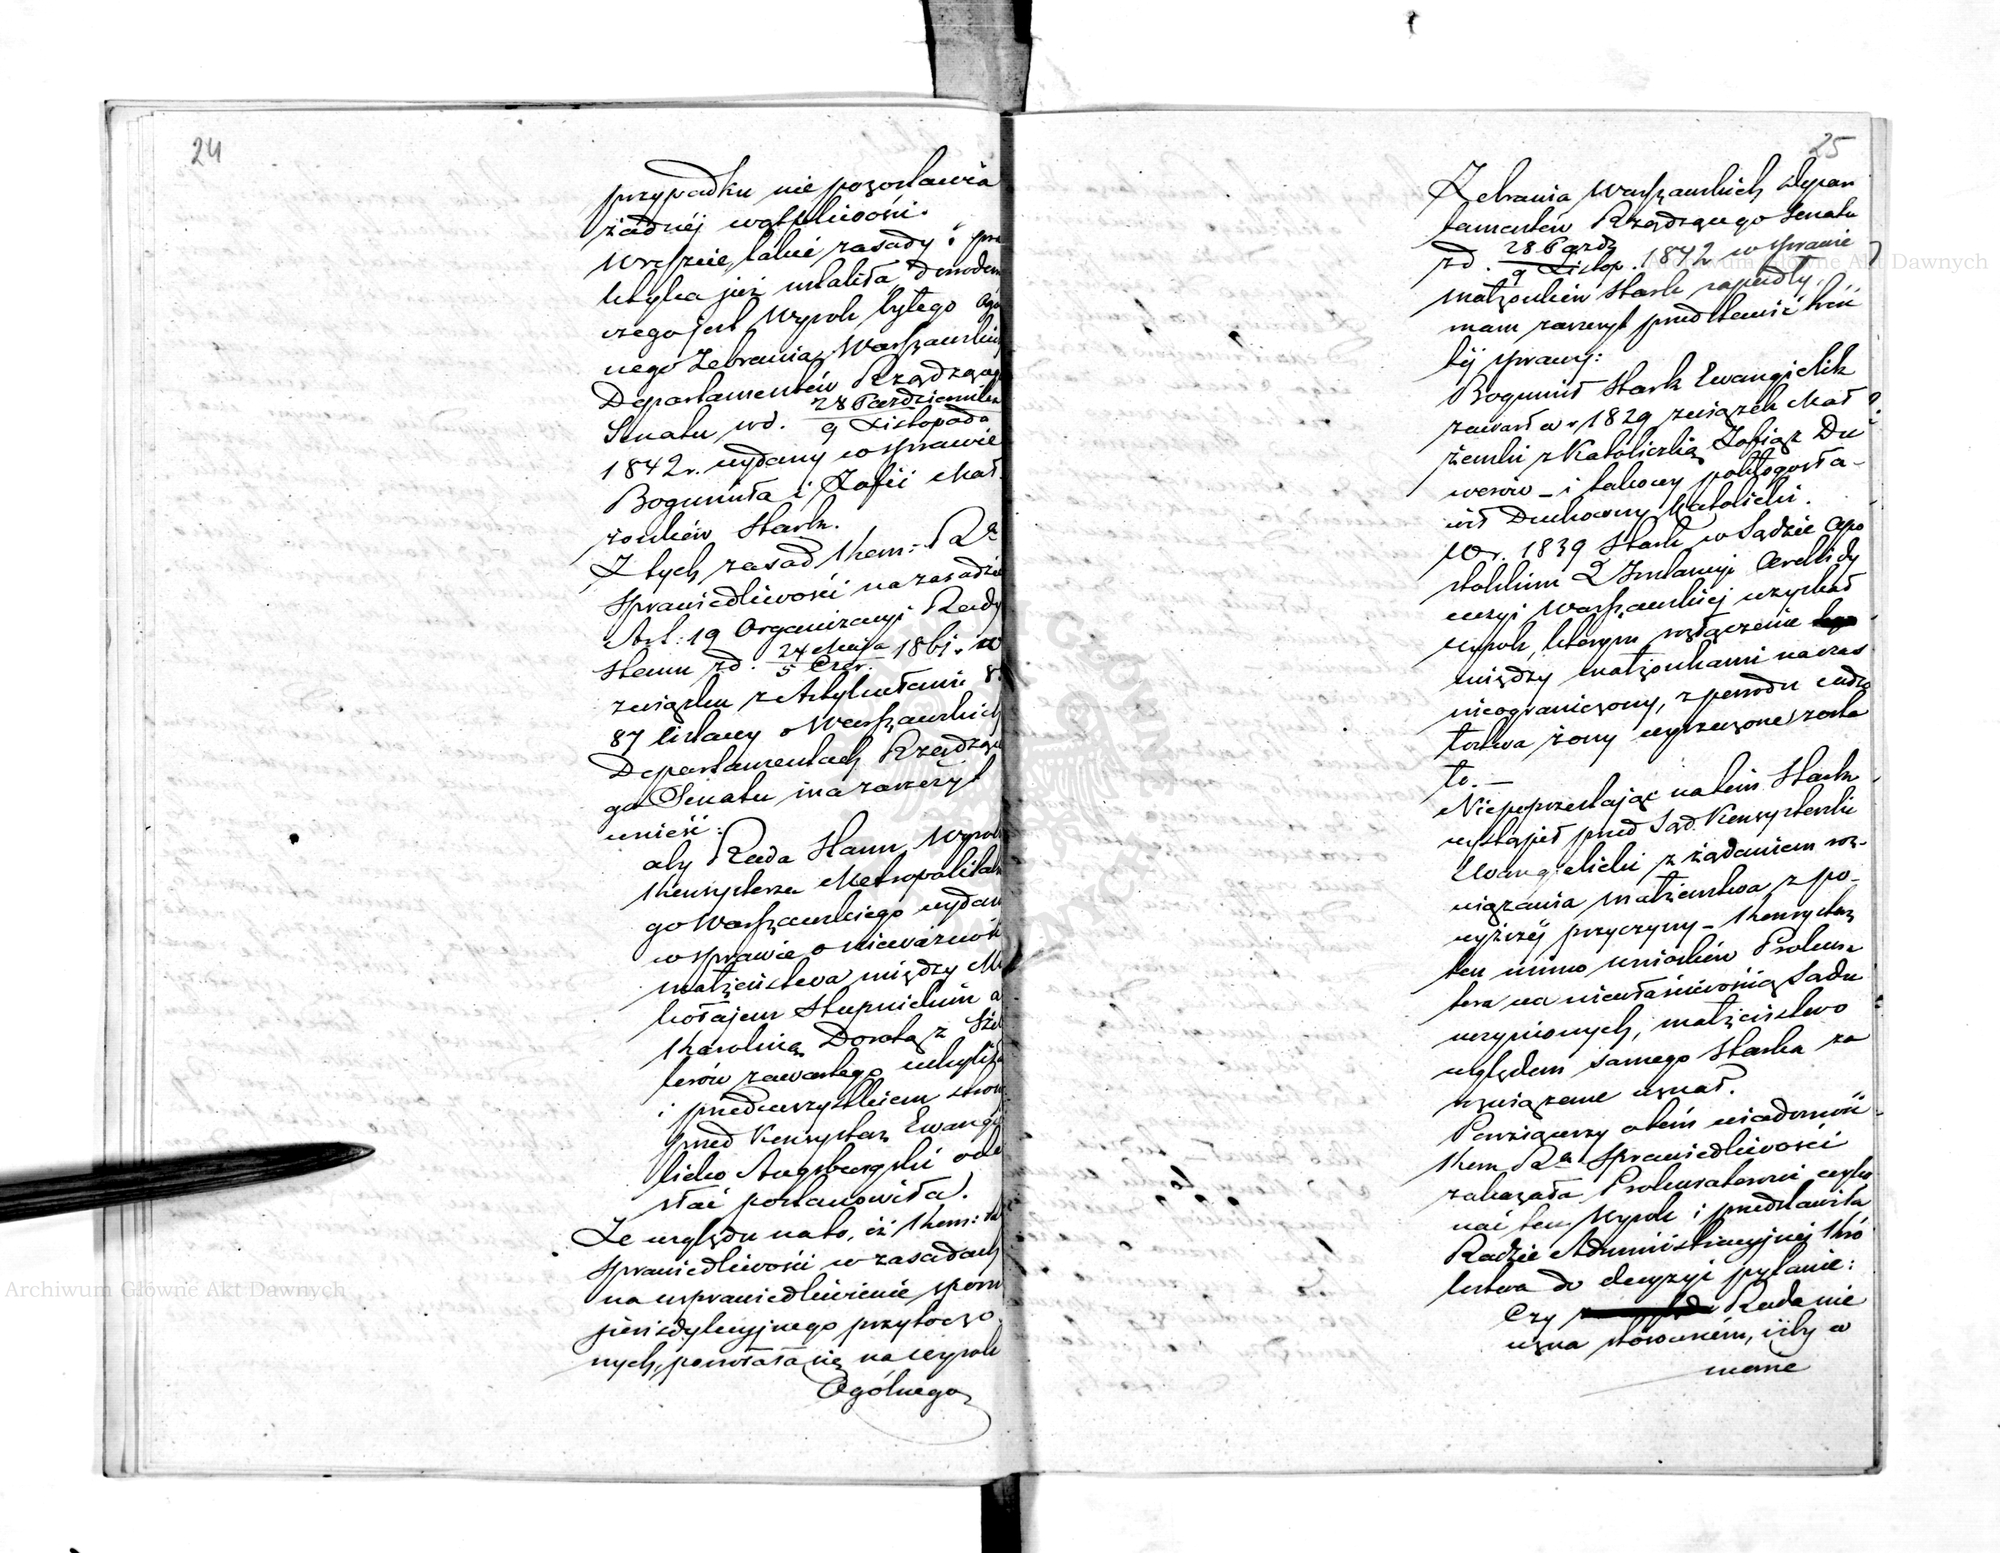 24
przypadku nie pozostawia
żadnéj wątpliwości.
Wreszcie, takie zasady i pra
ktyka już ustaliła, dowodem
czego jest Wyrok byłego Ogó
nego Zebrania Warszawskich
Departamentów Rządzącego
Senatu z d. 28 Października
9 Listopada
1842 r. wydany w sprawie
Bogumiła i Zofii Mał
żonków Stark.
Z tych zasad Kom: Rz
Sprawiedliwości na zasadzie
Art: 19 Organizacyi Rady
Stanu z d. 24 Maja
5 Czer. 1861 r. w
związku z Artykułami 8
87 Ustawy o Warszawskich
Departamentach Rządzące
go Senatu ma zaszczyt
wnieść:
aby Rada Stanu, Wyrok
Konsystorza Metropolitalne
go Warszawskiego wydany
w sprawie o nieważność
małżeństwa między Mi
kołajem Słupnickim a
Karoliną Dorotą z Szu
lców zawartego uchyliła
i przedewszystkiem stron
przed Konsystorz Ewangie
licko Augsburgski ode
słać postanowiła.
Ze względu na to, iż Kom: Rz
Sprawiedliwości w zasadach
na usprawiedliwienie sporu
jurisdykcyjnego przytoczo
nych, powołała się na wyrok
Ogólnego
25
Zebrania Warszawskich Depar
tamentów Rządzącego Senatu
z d. 28 Paźdz
9 Listop. 1842 w sprawie
małżonków Stark zapadły,
mam zaszczyt przedstawić treść
téj sprawy:
Bogumił Stark Ewangielik
zawarł w r 1829 związek Mał
żeński z Katoliczką Zofią z Du
werów – i takowy pobłogosła-
wił Duchowny Katolicki.
W r. 1839 Stark w Sądzie Apo
stolskim 2 Instancyi Archidy
ecezyi Warszawskiej uzyskał
wyrok, którym rozłączenie
między małżonkami na czas
nieograniczony, z powodu cudzo
łóstwa żony wyrzeczone zosta
ło. –
Niepoprzestając na tem Stark
wystąpił przed Sąd Konsystorski
Ewangielicki z żądaniem roz-
wiązania małżeństwa z po-
wyższéj przyczyny – Konsystorz
ten mimo wniosków Prokura
tora na niewłaściwością Sądu
uczynionych, małżeństwo
względem samego Starka za
rozwiązane uznał.
Powziąwszy o tém wiadomość
Kom Rz Sprawiedliwości
zakazała Prokuratorowi wyko
nać ten Wyrok i przedstawiła
Radzie Administracyjnej Kró
lestwa do decyzyi pytanie:
Czy Rada nie
uzna stosowném, iżby w
mocie